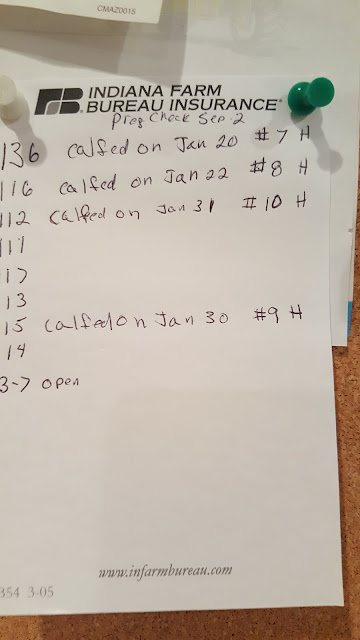 CMAZ0015
INDIANA FARM
BUREAU INSURANCE®
Preg Check Sep. 2
136 calfed on Jan 20 #7 H
116 calfed on Jan 22 #8 H
112 calfed on Jan 31 #10 H
111
117
13
15 calfed on Jan 30 #9 H
14
3-7 open
www.infarmbureau.com
354 3-05